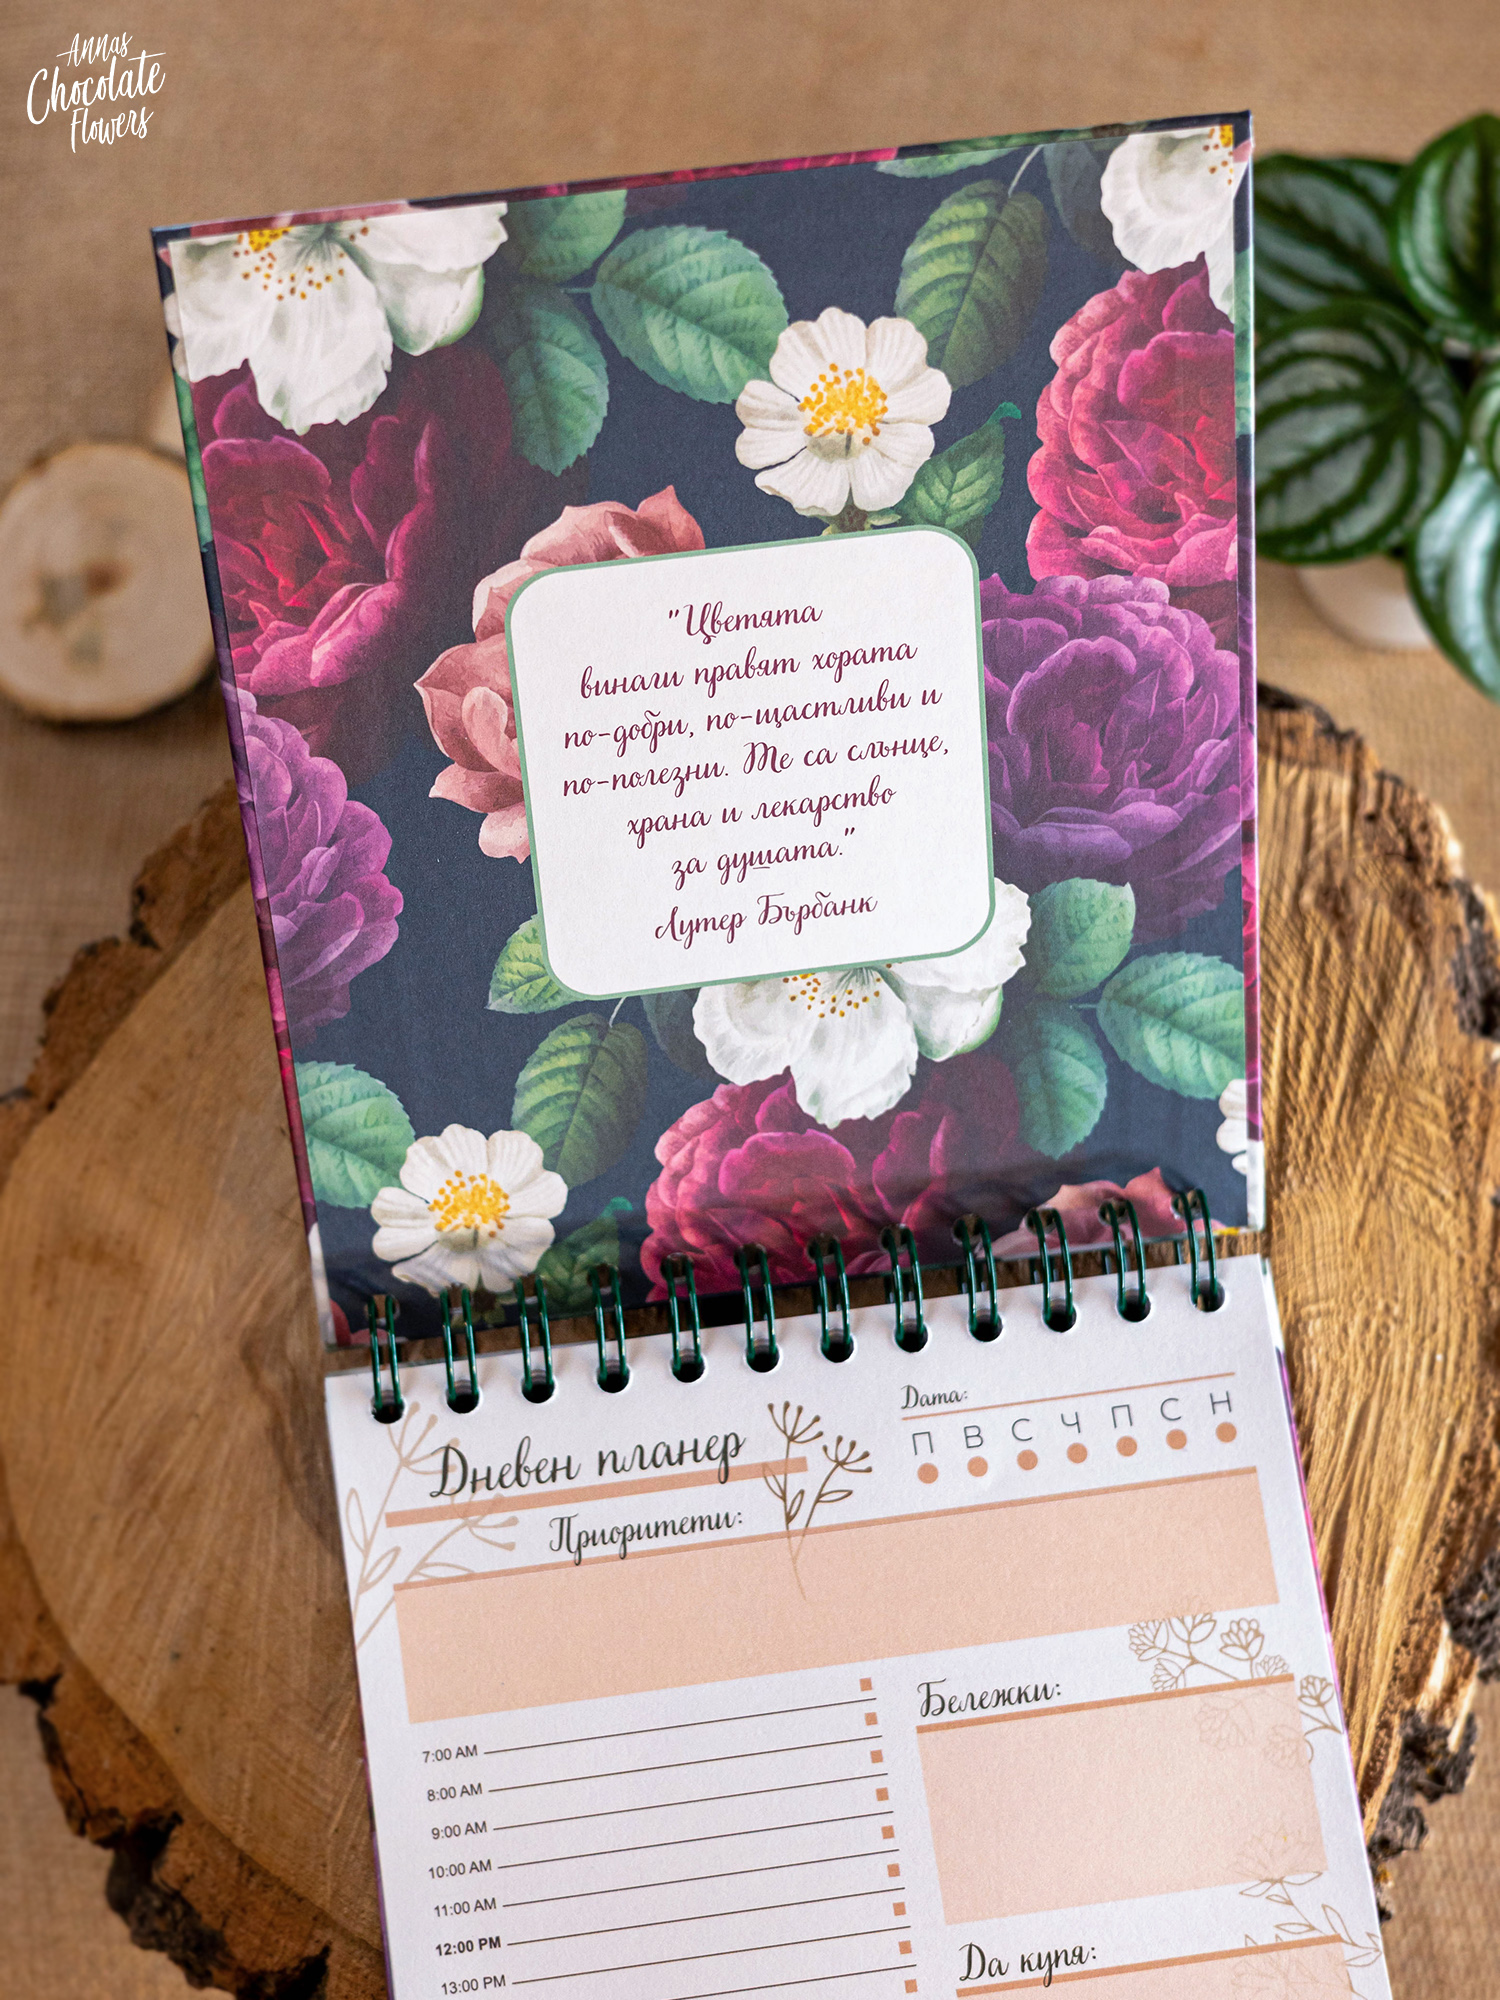 Annas
Chocolate
Flowers
"Цветята
винаги правят хората
по-добри, по-щастливи и
по-полезни. Те са слънце,
храна и лекарство
за душата."
Лутер Бърбанк
Дата:
П В С Ч П С Н
Дневен планер
Приоритети:
Бележки:
7:00 AM
8:00 AM
9:00 AM
10:00 AM
11:00 AM
12:00 PM
13:00 PM
Да купя: